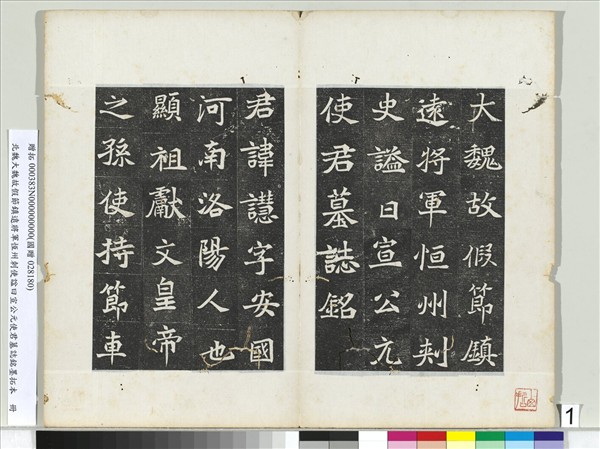 大魏故假節鎮
遠將軍恒州刾
史謚曰宣公元
使君墓誌銘
君諱譿字安國
河南洛陽人也
顯祖獻文皇帝
之孫使持節車
贈拓 000383N000000000(國贈 028180)
北魏大魏故假節鎮遠將軍恆州刺史諡曰宣公元使君墓誌銘墨拓本 冊
1